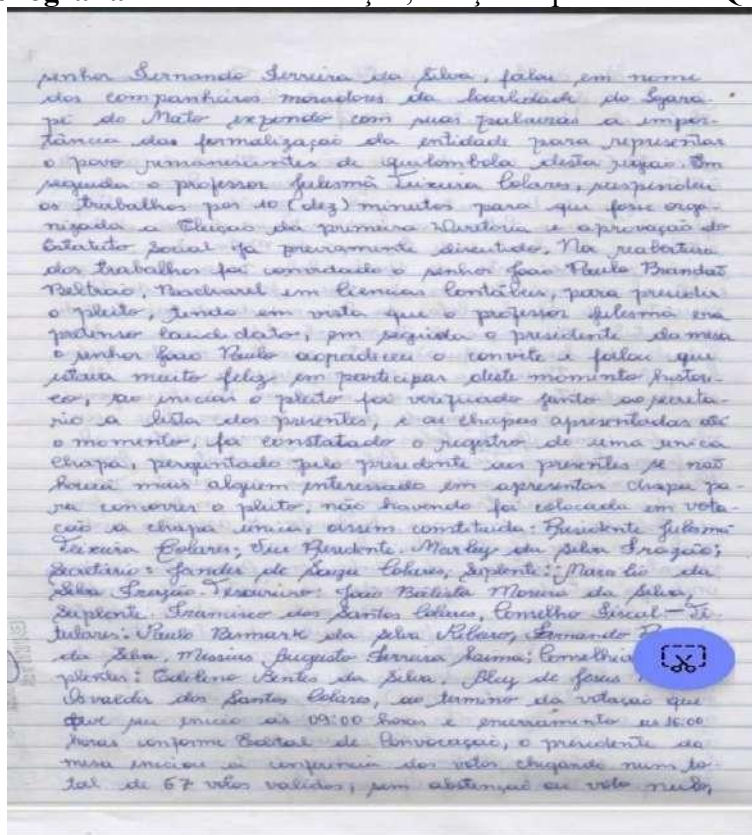 senhor Fernando Ferreira da Silva, falou em nome
dos companheiros moradores da localidade do Igara-
pé do Mato expondo com suas palavras a impor-
tância das formalização da entidade para representar
o povo remanescentes de quilombola desta região. Em
seguida o professor Julesmã Teixeira Colares, suspendeu
os trabalhos por 10 (dez) minutos para que fosse orga-
nizada a Eleição da primeira Diretoria e aprovação do
Estatuto Social já previamente discutido. Na reabertura
dos trabalhos foi convidado o senhor João Paulo Brandão
Beltrão, Bacharel em Ciencias Contábeis, para presidir
o pleito, tendo em vista que o professor Julesmã era
candidato, em seguida o presidente da mesa
o senhor João Paulo agradeceu o convite e falou que
estava muito feliz em participar deste momento histori-
co, ao iniciar o pleito foi verificado junto ao secreta-
rio a lista dos presentes, e as chapas apresentadas até
o momento, foi constatado o registro de uma unica
chapa, perguntado pelo presidente aos presentes se não
havia mais alguem interessado em apresentar chapa pa-
ra concorrer o pleito, não havendo foi colocada em vota-
ção a chapa unica, assim constituida: Presidente Julesmã
Teixeira Colares; Vice Presidente. Marley da Silva Frazão;
Secretário: Jander de Souza Colares, Suplente: da
Silva Frazão. Tesoureiro: João Batista Moreira da Silva,
Suplente. Francisco dos Santos Colares, Conselho Fiscal — Ti
tulares: Paulo Bismark da Silva Ribeiro, Fernando
da Silva, Messias Augusto Ferreira Saima; Conselho
plentes: Edileno Bentes da Silva. de Jesus
Osvaldir dos Santos Colares, ao termino da votação que
teve seu inicio as 09:00 horas e encerramento as 16:00
horas conforme Edital de Convocação, o presidente da
mesa iniciou a conferencia dos votos chegando num to-
tal de 67 votos validos, sem abstenção ou voto nulo,